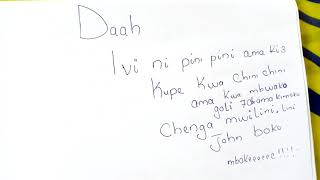 Daah
Ivi ni pini pini ama ki3
Kupe kwa chini chini
ama kwa mbwako
goli 7 ama
Chenga mwilini, lini
John boko
mbokeeeeee!!!!